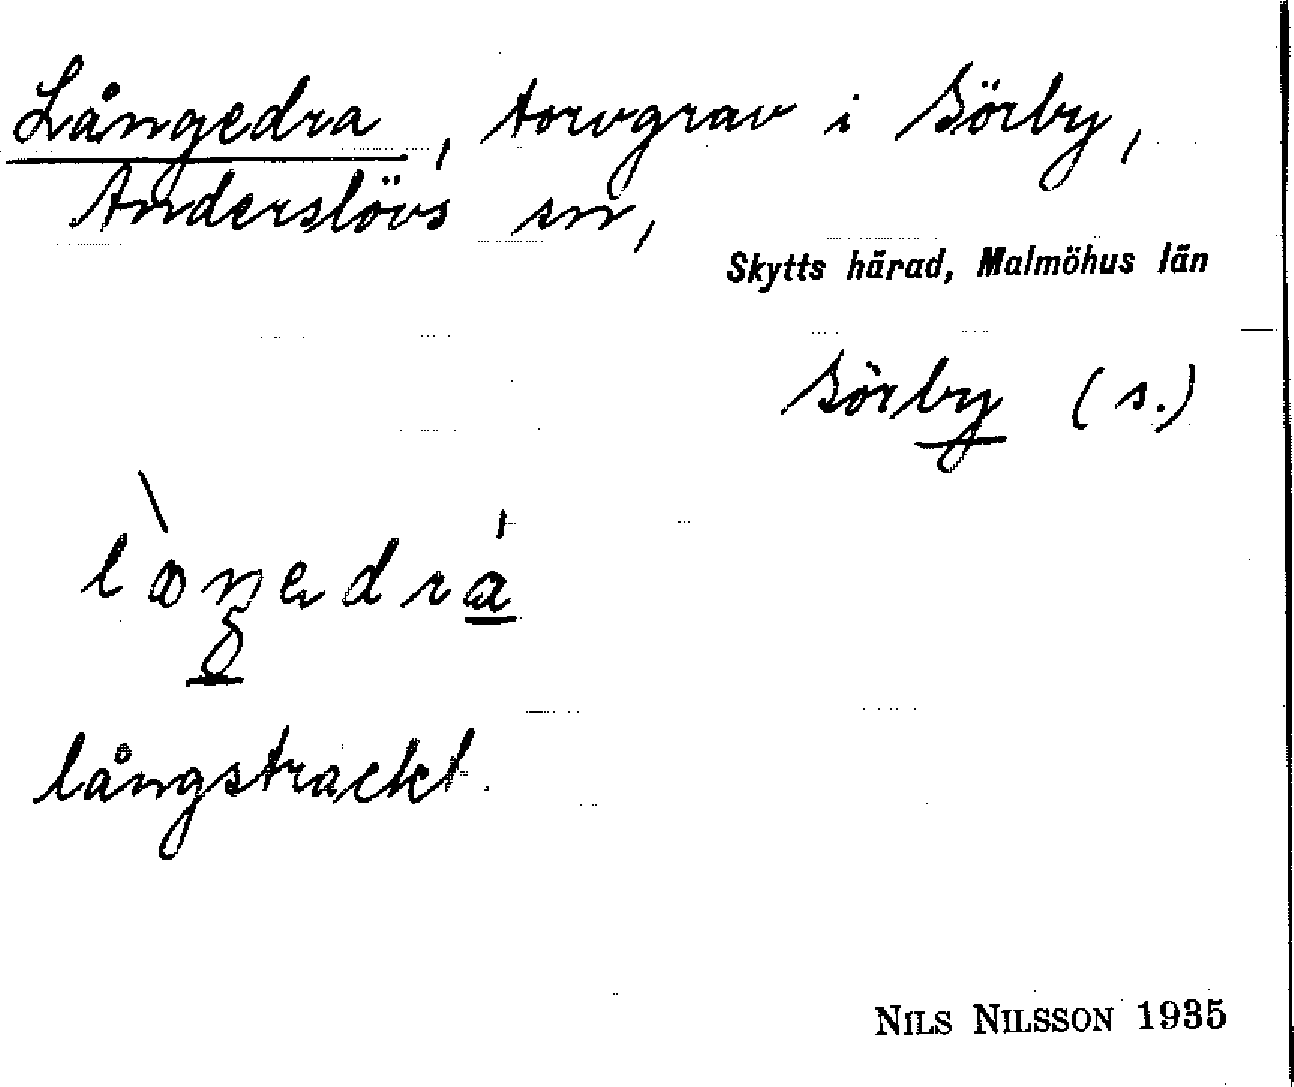 Långedra, torvgrav i Sörby,
Anderslövs sn,
Skytts härad, Malmöhus län
Sörby (s.)
långstrackt.
NILS NILSSON 1935